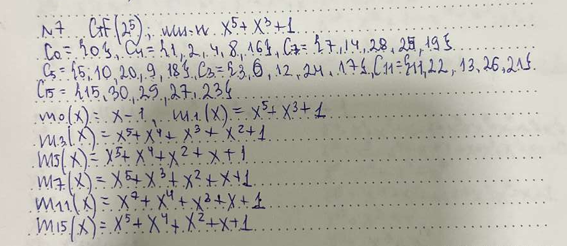 N7 GF(2⁵), мин-н x⁵+x³+1
C₀ = {0}, C₁ = {1, 2, 4, 8, 16}, C₇ = {7, 14, 28, 25, 19}
C₅ = {5, 10, 20, 9, 18}, C₃ = {3, 6, 12, 24, 17}, C₁₁ = {11, 22, 13, 26, 21}
C₁₅ = {15, 30, 29, 27, 23}
m₀(x) = x-1, m₁(x) = x⁵+x³+1
m₃(x) = x⁵+x⁴+x³+x²+1
m₅(x) = x⁵+x⁴+x²+x+1
m₇(x) = x⁵+x³+x²+x+1
m₁₁(x) = x⁷+x⁴+x³+x+1
m₁₅(x) = x⁵+x⁴+x²+x+1